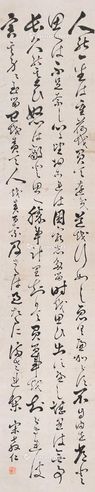 人の一生は重荷を負て遠き道を行くが如し急ぐべからず不自由を常と
思へば不足なし心に望起らば困窮したる時を思ひ出すべし堪忍は無事
長久の基ひ怒は敵と思へ勝事計り知て負事を知ら
至る己を責て人を責るな及ざるは過たるに 宋教仁